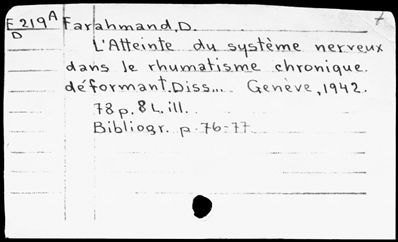 E 219 A Farahmand, D.
D
L'Atteinte du système nerveux
dans le rhumatisme chronique.
déformant. Diss... Genève, 1942.
78 p. 8 L. ill.
Bibliogr. p. 76-77